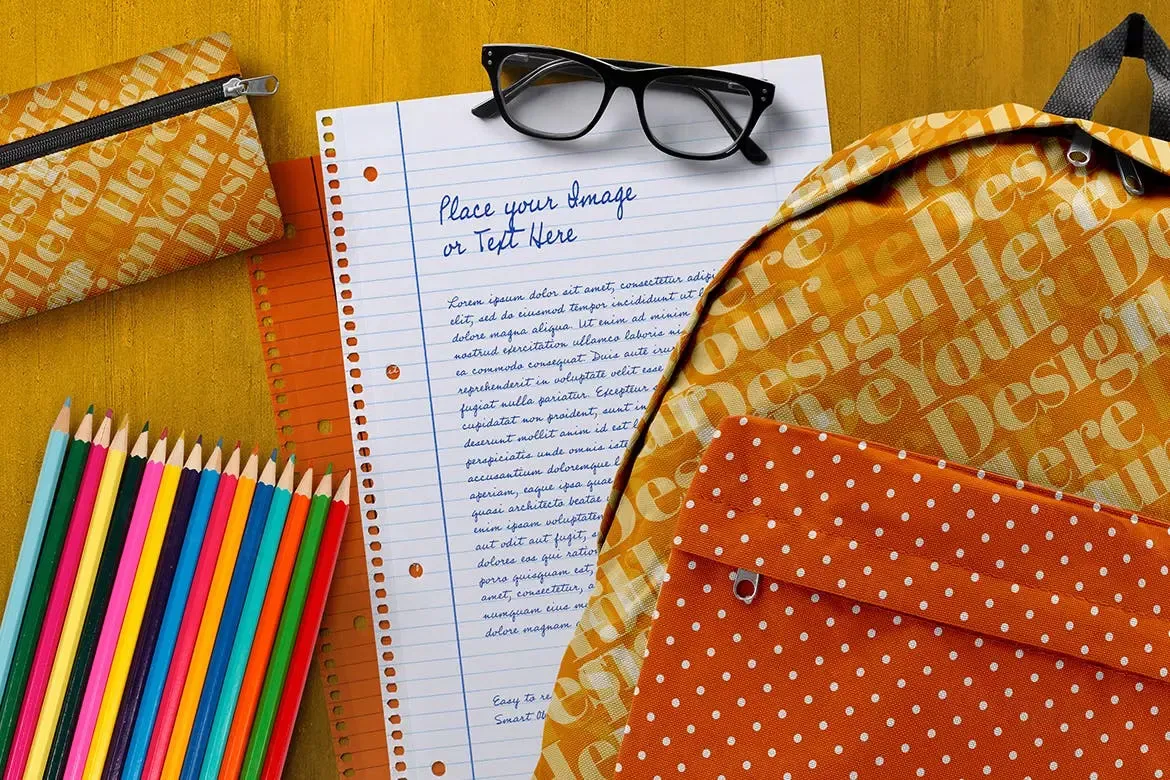 Place your Image
or Text Here
Lorem ipsum dolor sit amet, consectetur
elit, sed do eiusmod tempor incididunt ut
dolore magna aliqua. Ut enim ad minim
nostrud exercitation ullamco laboris
ea commodo consequat. Duis aute
reprehenderit in voluptate velit esse
fugiat nulla pariatur. Excepteur
cupidatat non proident, sunt in
deserunt mollit anim id est
perspiciatis unde omnis
accusantium doloremque
aperiam, eaque ipsa quae
quasi architecto beatae
enim ipsam
aut odit aut fugit,
dolores eos qui
porro quisquam est,
amet, consectetur,
numquam eius
dolore magnam
Easy to
Smart
Here
Your
Design
Here
Your
Design
Here
Your
Design
Here